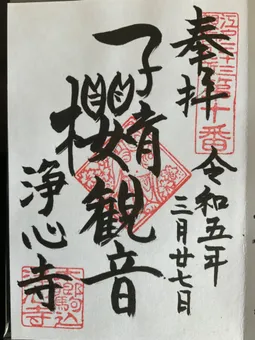 第十番
奉拝
令和五年
三月廿七日
子育
櫻観音
浄心寺